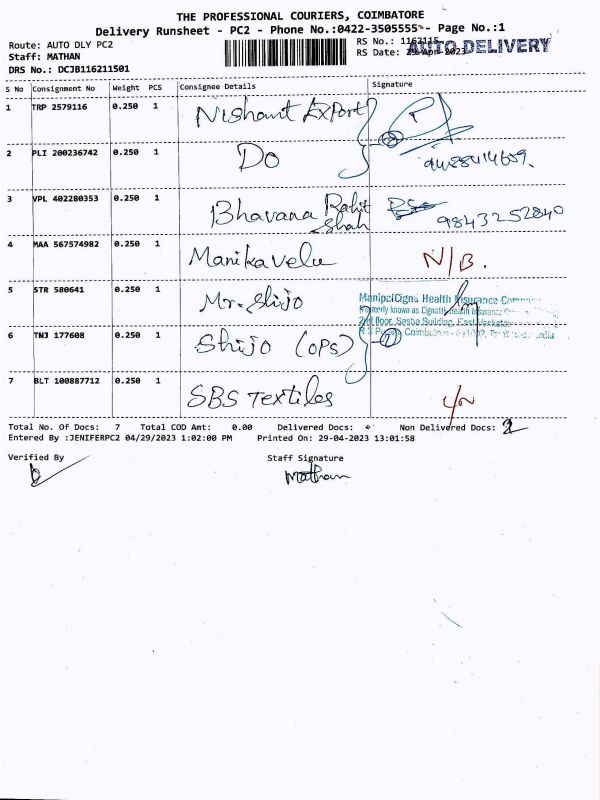 THE PROFESSIONAL COURIERS, COIMBATORE
Delivery Runsheet - PC2 - Phone No.:0422-3505555 - Page No.:1
Route: AUTO DLY PC2
RS No.: 1162115
AUTO DELIVERY
Staff: MATHAN
RS Date: 29-Apr-2023
DRS No.: DCJB116211501
S No Consignment No Weight PCS Consignee Details Signature
1 TRP 2579116 0.250 1 Nishant Export
2 PLI 200236742 0.250 1 Do
3 VPL 402280353 0.250 1 Bhavana Rohit Shah 9843252840
4 MAA 567574982 0.250 1 Manikavelu N/B.
5 STR 580641 0.250 1 Mr. Shijo
ManipalCigna Health Insurance
Formerly known as Cigna Health Insurance
2nd Floor, Sasba Building, East Venkatas
6 TNJ 177608 0.250 1 Shijo (OPS)
7 BLT 100887712 0.250 1 SBS Textiles
Total No. Of Docs: 7 Total COD Amt: 0.00 Delivered Docs: Non Delivered Docs: 2
Entered By :JENIFERPC2 04/29/2023 1:02:00 PM Printed On: 29-04-2023 13:01:58
Verified By Staff Signature
Mathan